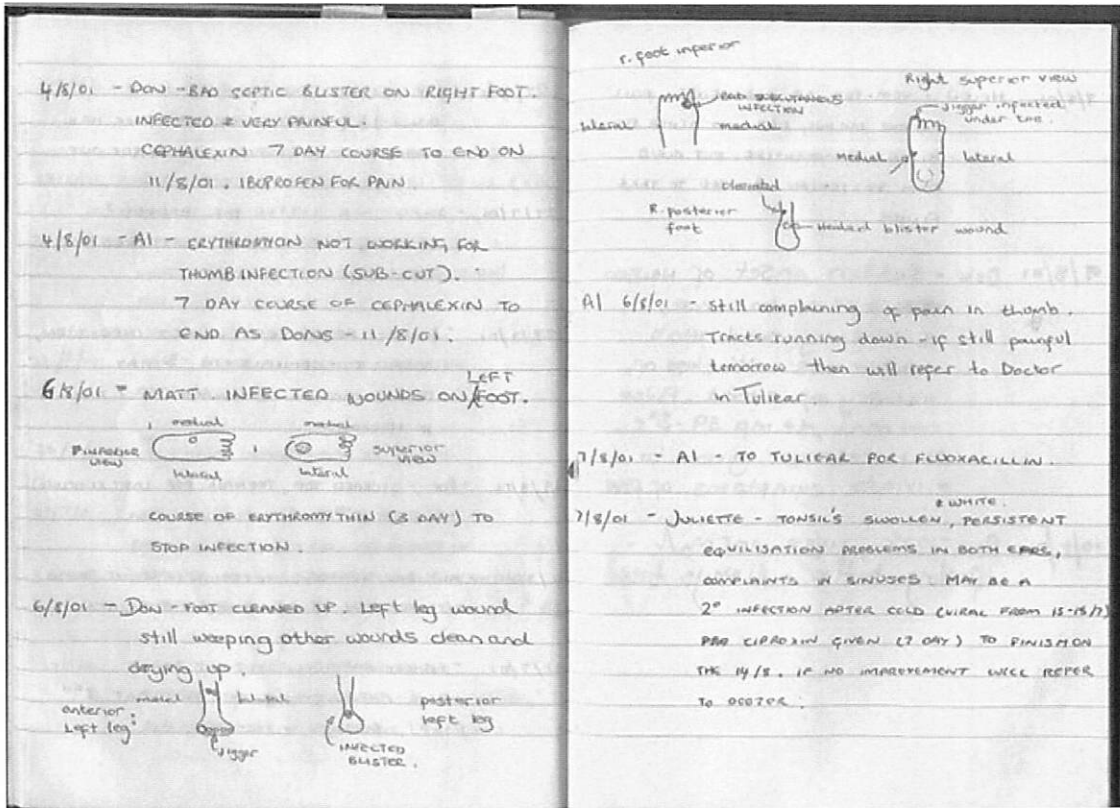 4/8/01 - DON - BAD SEPTIC BLISTER ON RIGHT FOOT.
INFECTED & VERY PAINFUL.
CEPHALEXIN 7 DAY COURSE TO END ON
11/8/01. IBUPROFEN FOR PAIN
4/8/01 - Al - ERYTHROMYCIN NOT WORKING FOR
THUMB INFECTION (SUB-CUT).
7 DAY COURSE OF CEPHALEXIN TO
END AS DONS - 11/8/01.
6/8/01 - MATT INFECTED WOUNDS ON LEFT FOOT.
medial medial
INFERIOR VIEW SUPERIOR VIEW
lateral lateral
COURSE OF ERYTHROMYTHIN (3 DAY) TO
STOP INFECTION.
6/8/01 - DON - FOOT CLEANED UP. Left leg wound
still weeping other wounds clean and
drying up.
anterior left leg:
Jigger
posterior left leg
INFECTED BLISTER.
r. foot inferior
BAD SUBCUTANEOUS INFECTION
lateral medial
Right superior view
Jigger infected under toe.
Medial lateral
R. posterior foot
Healed blister wound
Al 6/8/01 - Still complaining of pain in thumb.
Tracts running down - if still painful
tomorrow then will refer to Doctor
in Tuliear.
7/8/01 - Al - TO TULIEAR FOR FLUOXACILLIN.
7/8/01 - JULIETTE - TONSIL'S SWOLLEN & WHITE, PERSISTENT
EQUILISATION PROBLEMS IN BOTH EARS,
COMPLAINTS IN SINUSES MAY BE A
2° INFECTION AFTER COLD (VIRAL FROM 15-18/7)
CIPROXIN GIVEN (7 DAY) TO FINISH ON
THE 14/8. IF NO IMPROVEMENT WILL REFER
TO DOCTOR.